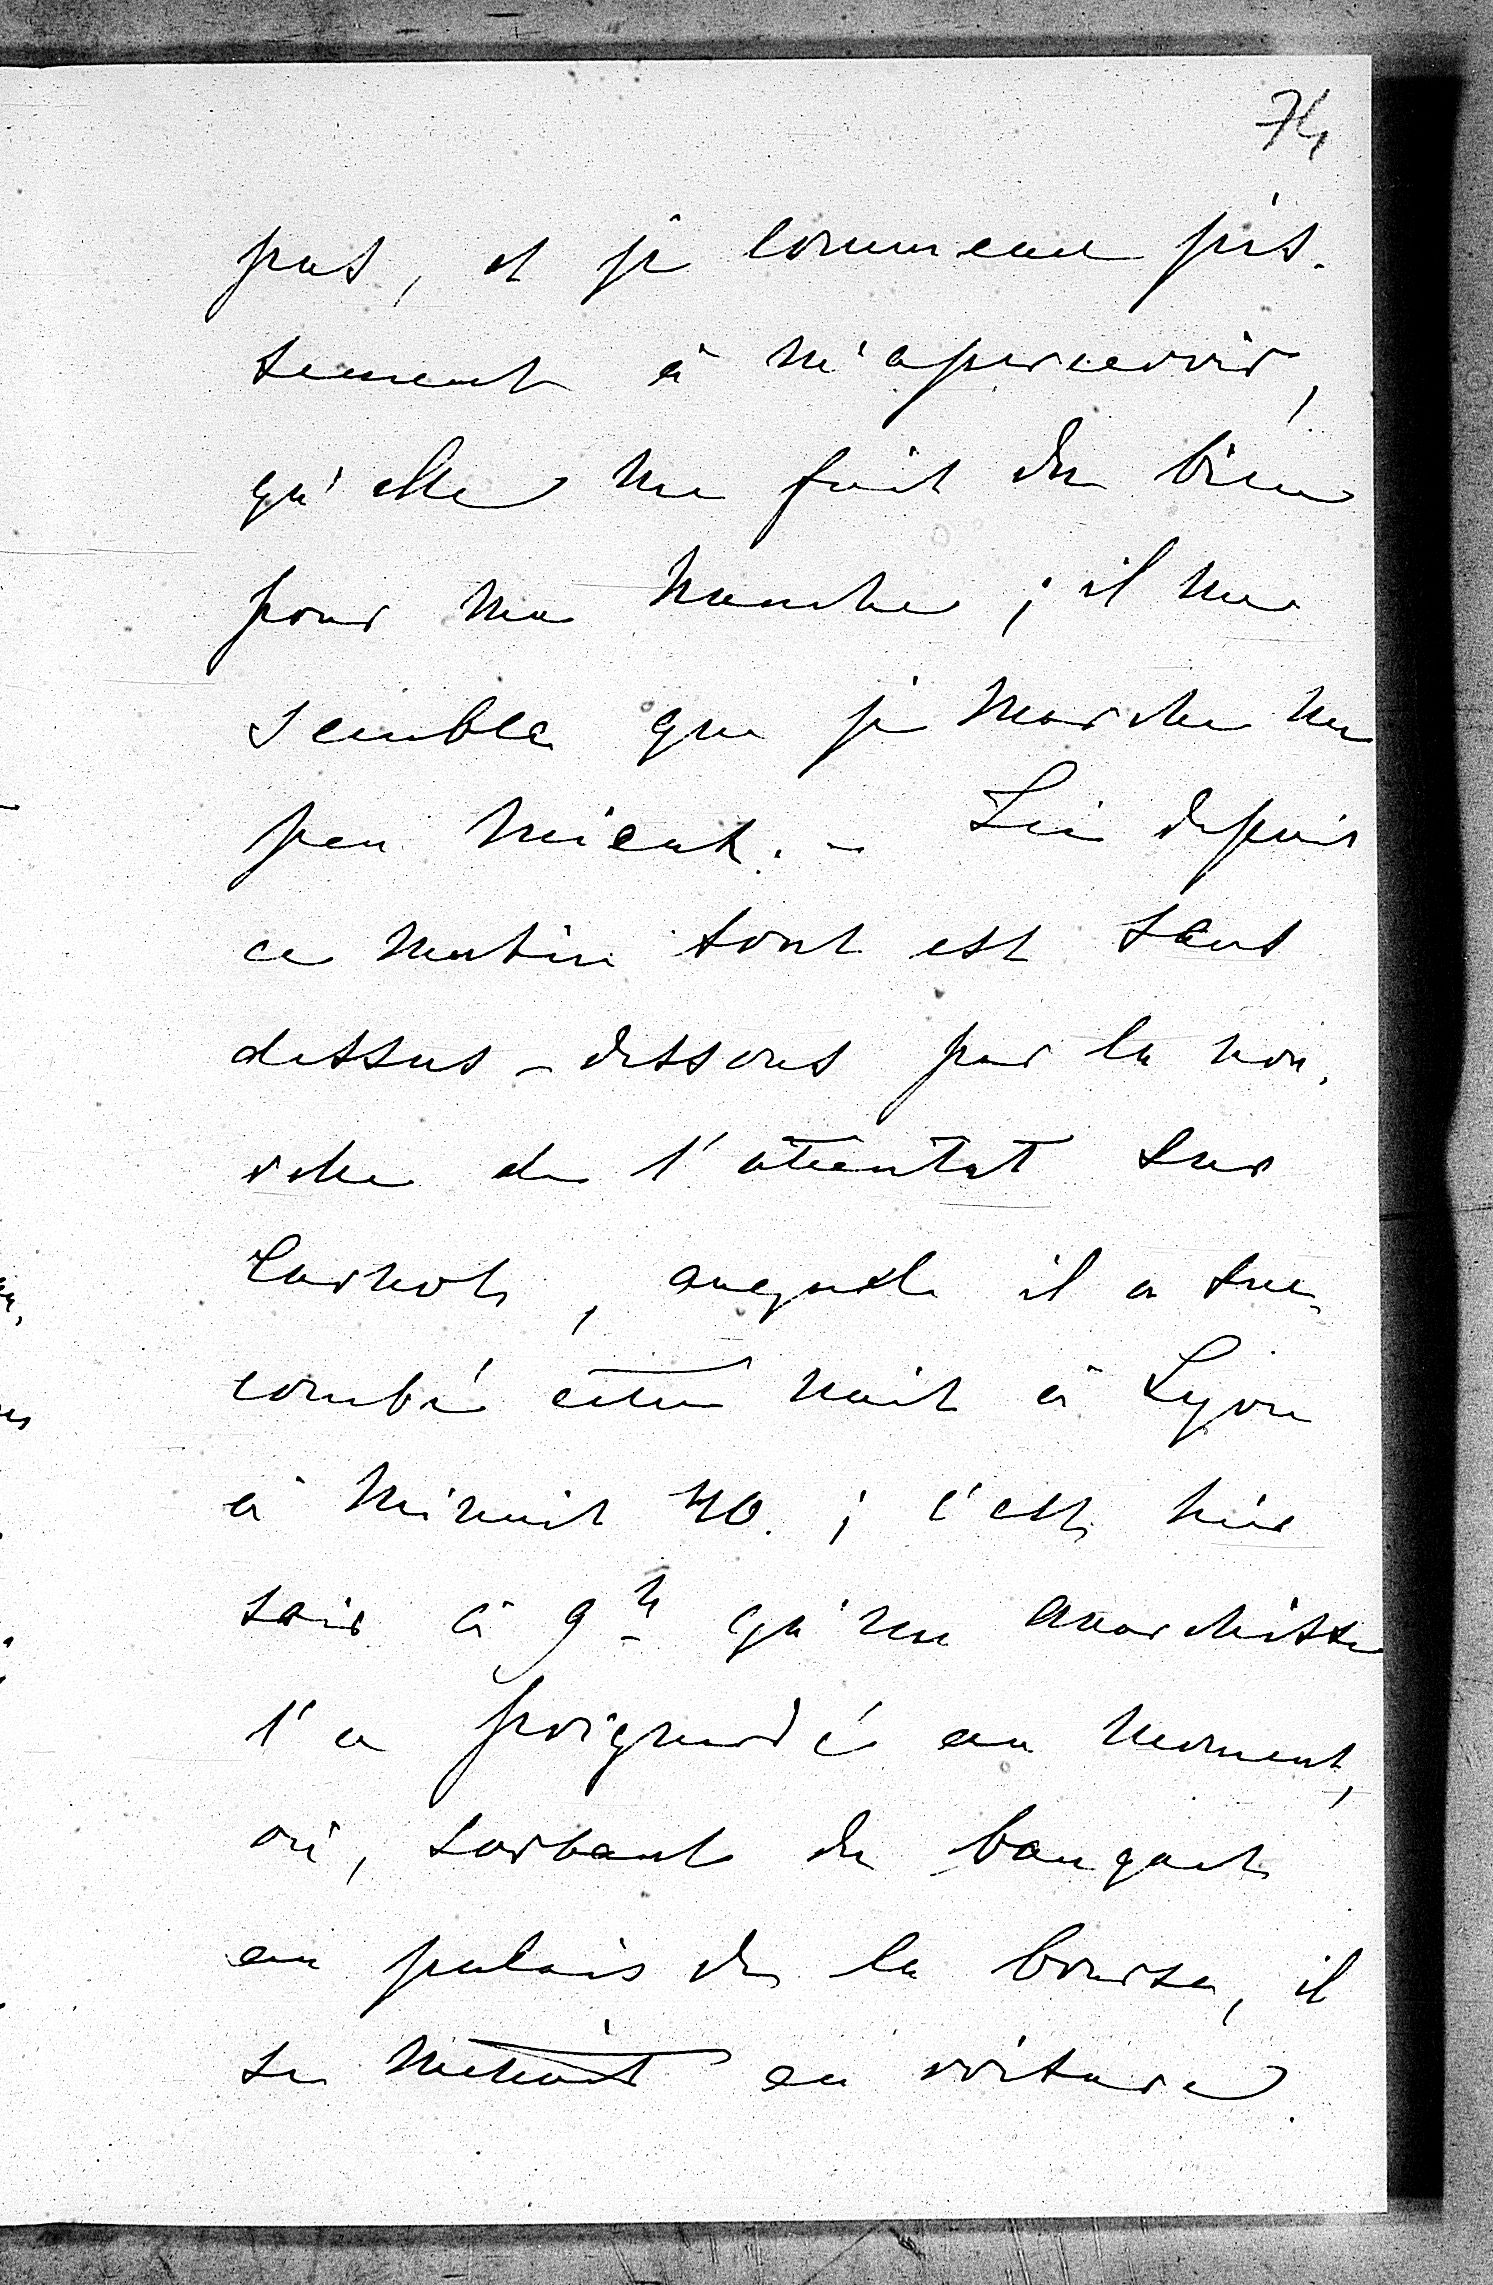 74
pas, et je commence jus-
tement à m'apercevoir,
qu'elle me fait du bien
pour ma hanche ; il me
semble que je marche un
peu mieux. - Ici depuis
ce matin tout est sens
dessus-dessous par la nou-
velle de l'attentat sur
Carnot, auquel il a suc-
combé cette nuit à Lyon
à minuit 40 ; c'est hier
soir à 9h qu'un anarchiste
l'a poignardé au moment,
où, sortant du banquet
au palais de la bourse, il
se mettait en voiture.